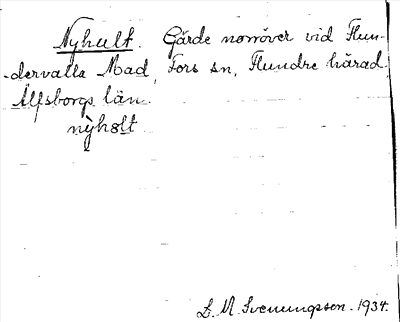 Nyhult. Gärde norröver vid Flun-
-dervalla Mad, Fors sn, Flundre härad,
Älfsborgs län.
nyhòlt
L. M. Svenungsson. 1934.